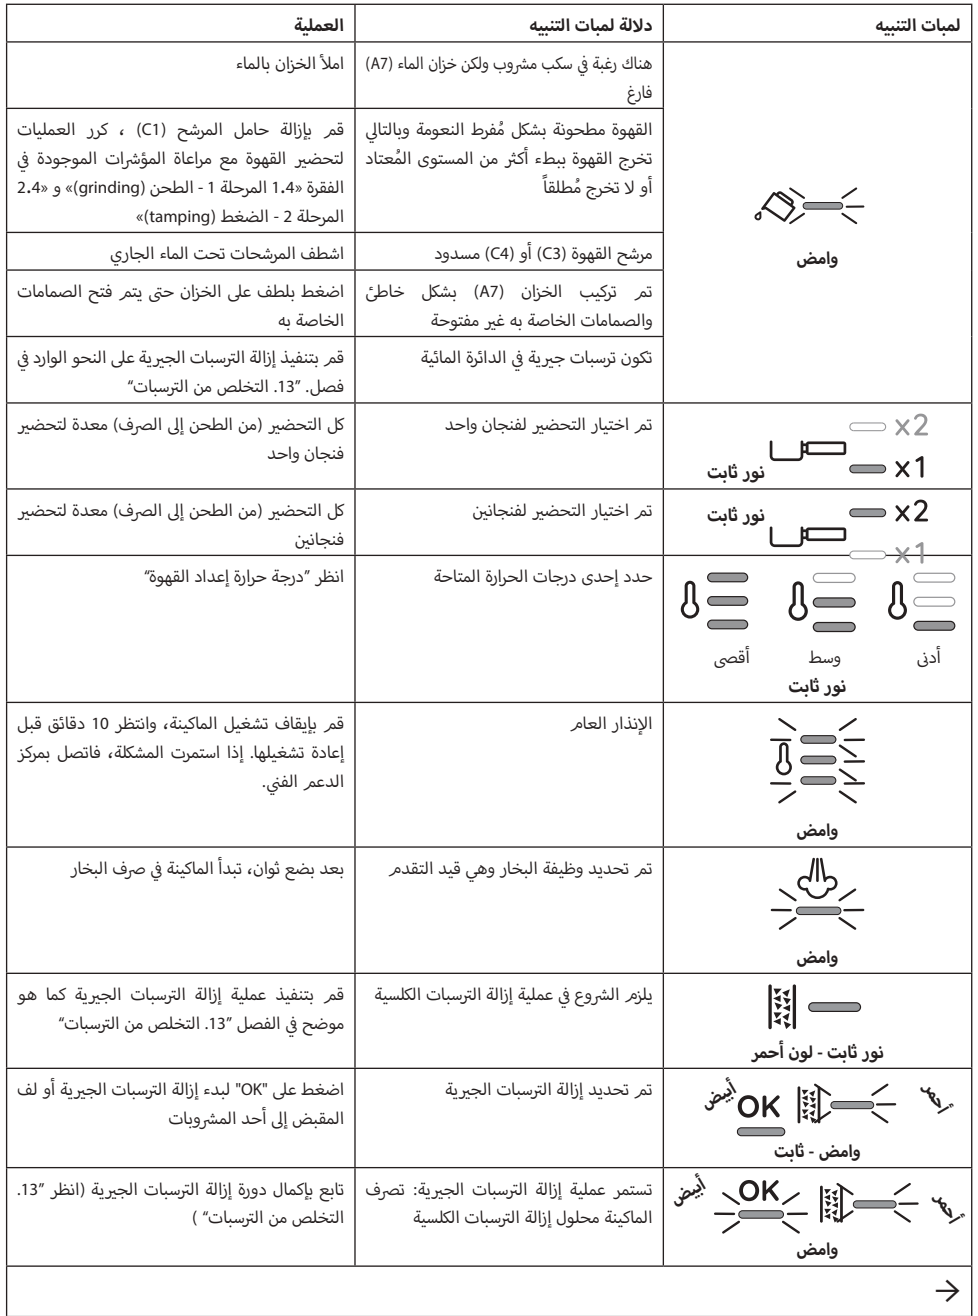 لمبات التنبيه
دلالة لمبات التنبيه
العملية
هناك رغبة في سكب مشروب ولكن خزان الماء (A7)
فارغ
املأ الخزان بالماء
القهوة مطحونة بشكل مُفرط النعومة وبالتالي
تخرج القهوة ببطء أكثر من المستوى المُعتاد
أو لا تخرج مُطلقاً
قم بإزالة حامل المرشح (C1) ، كرر العمليات
لتحضير القهوة مع مراعاة المؤشرات الموجودة في
الفقرة «1.4 المرحلة 1 - الطحن (grinding)» و «2.4
المرحلة 2 - الضغط (tamping)»
وامض
مرشح القهوة (C3) أو (C4) مسدود
اشطف المرشحات تحت الماء الجاري
تم تركيب الخزان (A7) بشكل خاطئ
والصمامات الخاصة به غير مفتوحة
اضغط بلطف على الخزان حتى يتم فتح الصمامات
الخاصة به
تكون ترسبات جيرية في الدائرة المائية
قم بتنفيذ إزالة الترسبات الجيرية على النحو الوارد في
فصل. "13. التخلص من الترسبات"
x2
x1
نور ثابت
تم اختيار التحضير لفنجان واحد
كل التحضير (من الطحن إلى الصرف) معدة لتحضير
فنجان واحد
x2
نور ثابت
x1
تم اختيار التحضير لفنجانين
كل التحضير (من الطحن إلى الصرف) معدة لتحضير
فنجانين
أدنى
وسط
أقصى
نور ثابت
حدد إحدى درجات الحرارة المتاحة
انظر "درجة حرارة إعداد القهوة"
وامض
الإنذار العام
قم بإيقاف تشغيل الماكينة، وانتظر 10 دقائق قبل
إعادة تشغيلها. إذا استمرت المشكلة، فاتصل بمركز
الدعم الفني.
وامض
تم تحديد وظيفة البخار وهي قيد التقدم
بعد بضع ثوان، تبدأ الماكينة في صرف البخار
نور ثابت - لون أحمر
يلزم الشروع في عملية إزالة الترسبات الكلسية
قم بتنفيذ عملية إزالة الترسبات الجيرية كما هو
موضح في الفصل "13. التخلص من الترسبات"
أحمر
OK
أبيض
وامض - ثابت
تم تحديد إزالة الترسبات الجيرية
اضغط على "OK" لبدء إزالة الترسبات الجيرية أو لف
المقبض إلى أحد المشروبات
أحمر
OK
أبيض
وامض
تستمر عملية إزالة الترسبات الجيرية: تصرف
الماكينة محلول إزالة الترسبات الكلسية
تابع بإكمال دورة إزالة الترسبات الجيرية (انظر "13.
التخلص من الترسبات" )